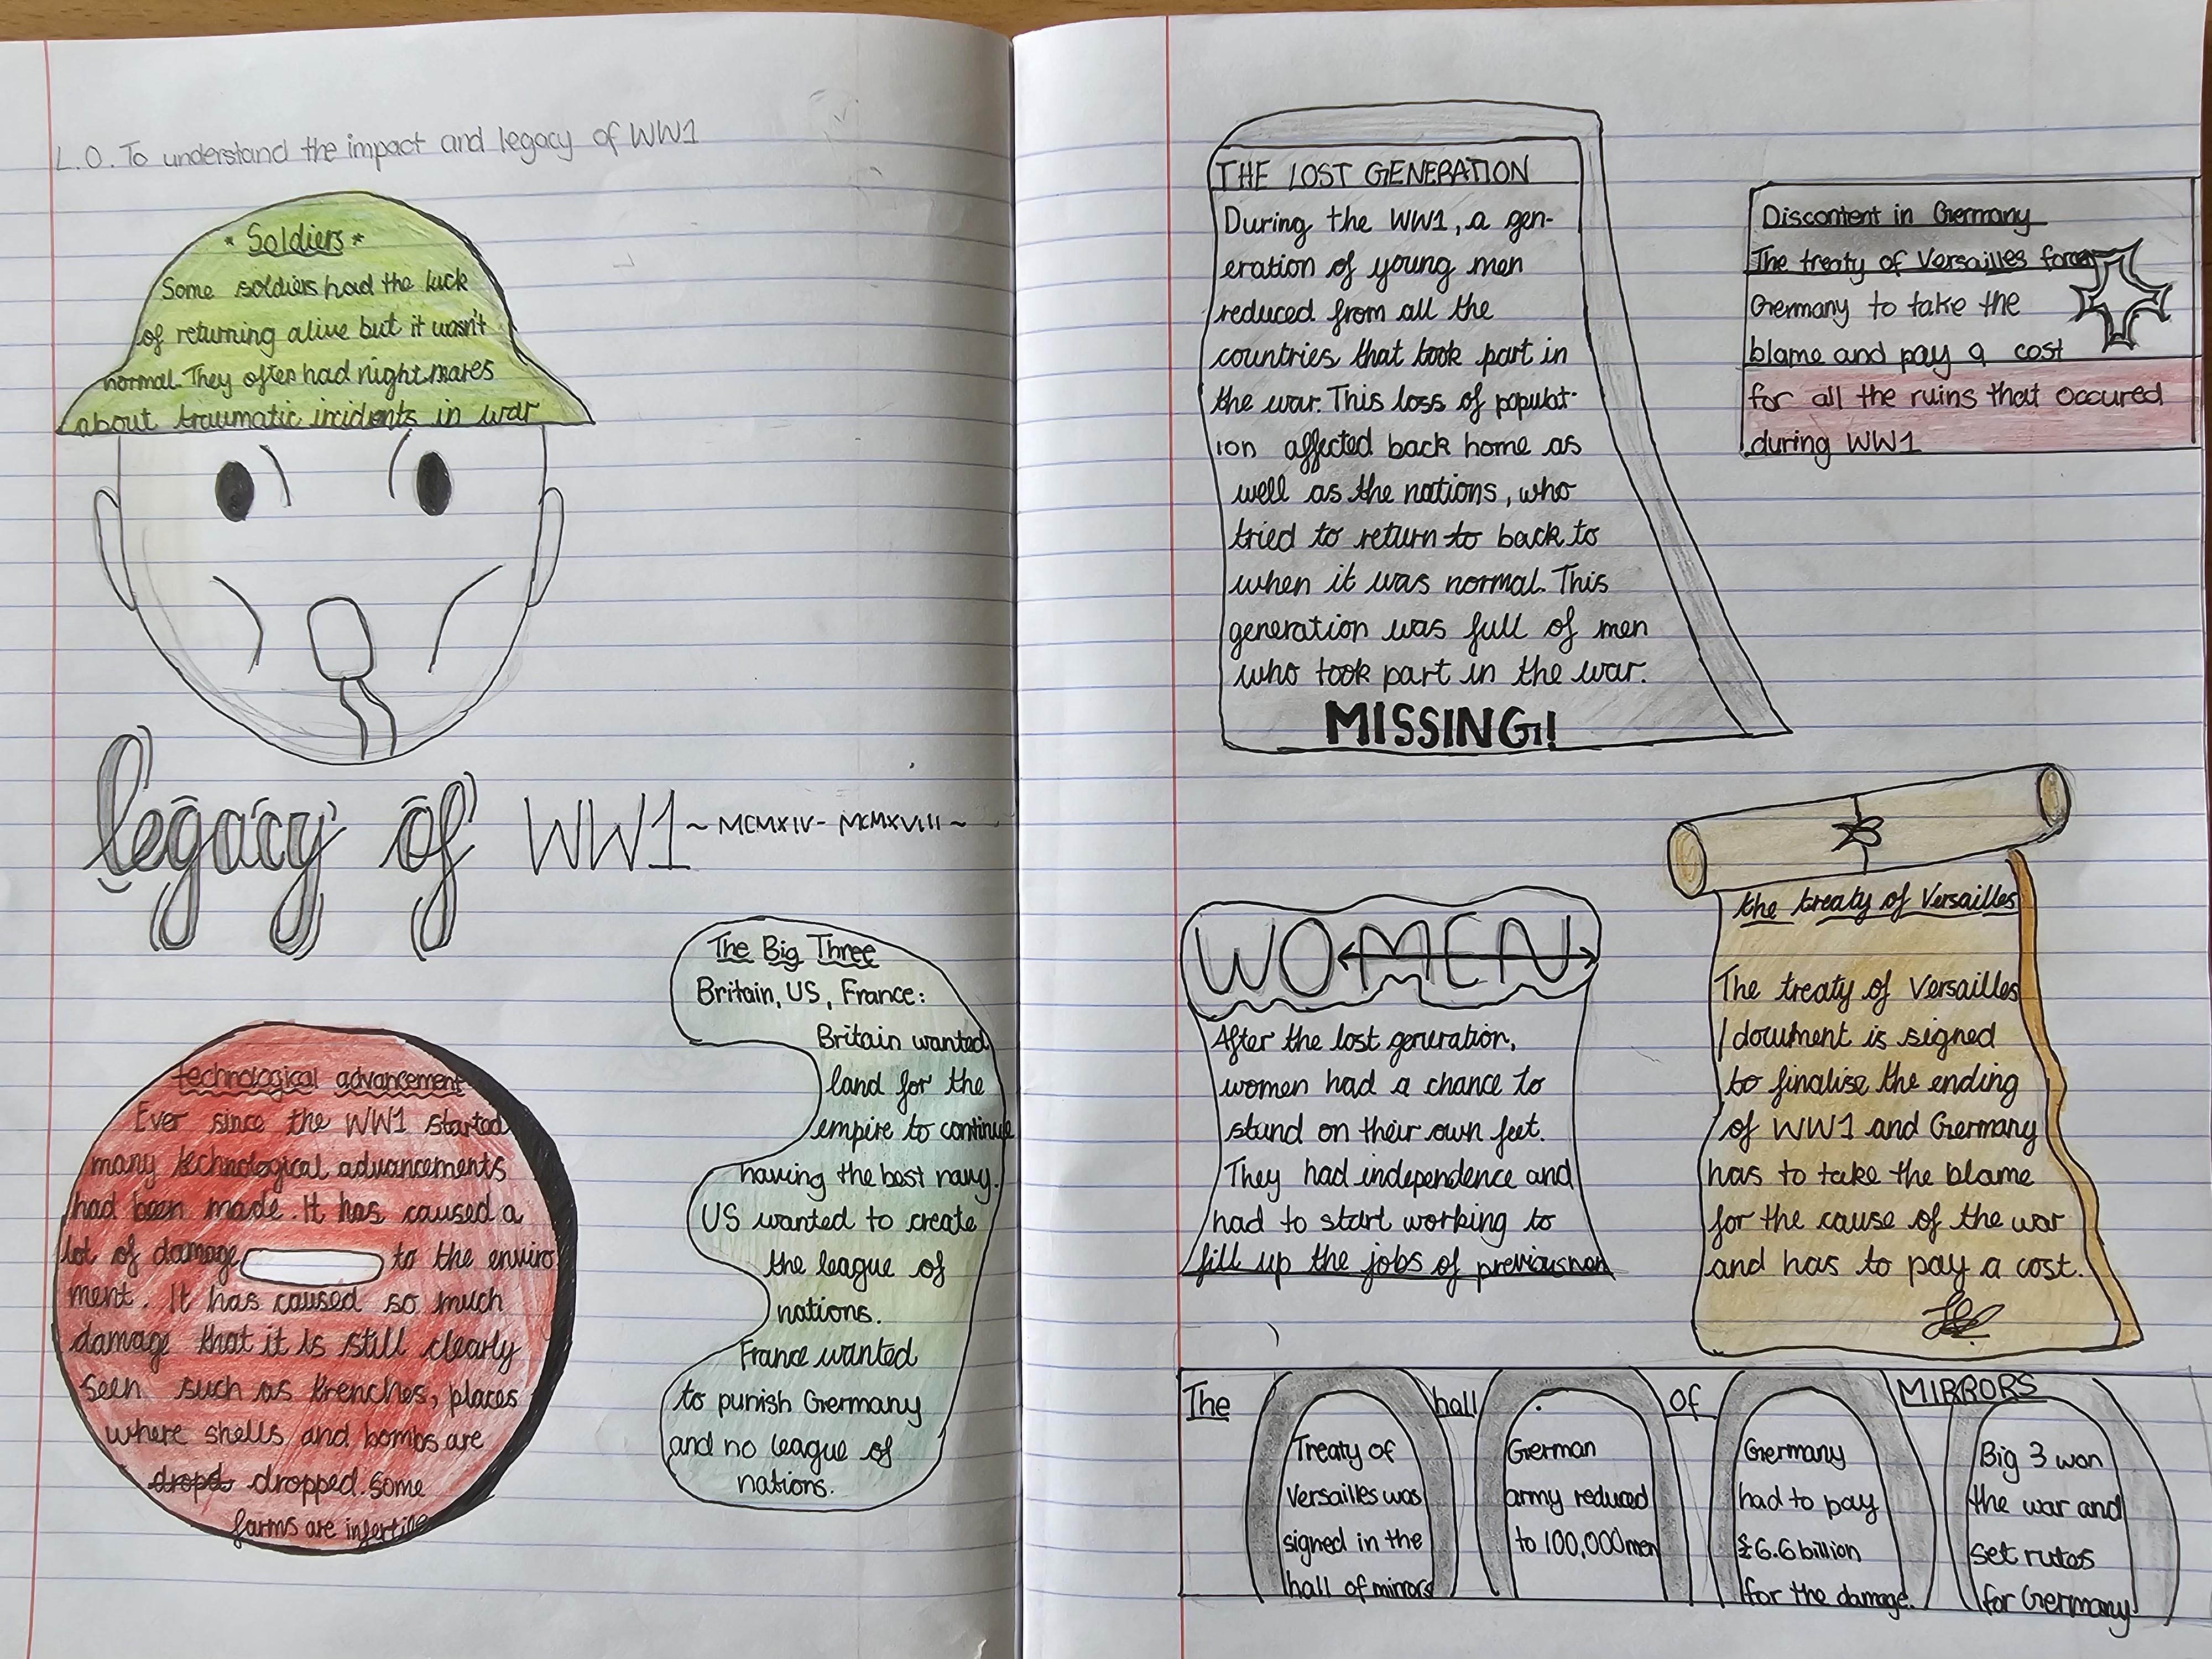 L.O. To understand the impact and legacy of WW1
* Soldiers *
Some soldiers had the luck
of returning alive but it wasn't
normal. They often had nightmares
about traumatic incidents in war
legacy of WW1 ~ MCMXIV - MCMXVIII ~
technological advancement
Ever since the WW1 started
many technological advancements
had been made. It has caused a
lot of damage to the enviro
ment. It has caused so much
damage that it is still clearly
seen such as trenches, places
where shells and bombs are
dropd dropped. Some
farms are infertile
The Big Three
Britain, US, France:
Britain wanted
land for the
empire to continue
having the best navy.
US wanted to create
the league of
nations.
France wanted
to punish Germany
and no league of
nations.
THE LOST GENERATION
During the WW1, a gen-
eration of young men
reduced from all the
countries that took part in
the war. This loss of populat-
ion affected back home as
well as the nations, who
tried to return to back to
when it was normal. This
generation was full of men
who took part in the war.
MISSING!
Discontent in Germany
The treaty of Versailles forces
Germany to take the
blame and pay a cost
for all the ruins that occured
during WW1
WOMEN
After the lost generation,
women had a chance to
stand on their own feet.
They had independence and
had to start working to
fill up the jobs of previous men
the treaty of Versailles
The treaty of Versailles
document is signed
to finalise the ending
of WW1 and Germany
has to take the blame
for the cause of the war
and has to pay a cost.
The hall of MIRRORS
Treaty of
Versailles was
signed in the
hall of mirrors
German
army reduced
to 100,000 men
Germany
had to pay
£6.6 billion
for the damage.
Big 3 won
the war and
set rules
for Germany